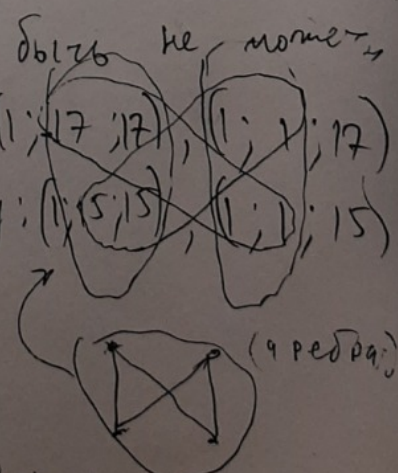 быть не может
(1; 17; 17), (1; 1; 17)
; (1; 15; 15), (1; 1; 15)
(4 ребра;)